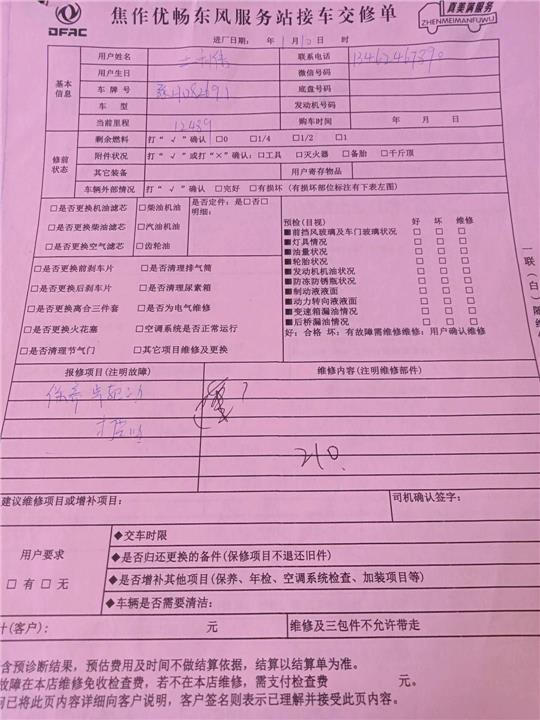 DFAC
焦作优畅东风服务站接车交修单
真美满服务
ZHENMEIMANFUWU
进厂日期: 年 1月 日 时
基本信息
用户姓名 联系电话
用户生日 微信号码
车牌号 底盘号码
车型 发动机号码
当前里程 12439 购车时间 年 月 日
修前状态
剩余燃料 打“√”确认 □0 □1/4 □1/2 □1
附件状况 打“√”或打“×”确认:□工具 □灭火器 □备胎 □千斤顶
其它装备 用户寄存物品
车辆外部情况 打“√”确认 □完好 □有损坏(有损坏部位标注有下表左图)
□是否更换机油滤芯 □柴油机油 是否定件:是□否□
明细:
□是否更换柴油滤芯 □汽油机油
□是否更换空气滤芯 □齿轮油
□是否更换前刹车片 □是否清理排气筒
□是否更换后刹车片 □是否清理尿素箱
□是否更换离合三件套 □是否为电气维修
□是否更换火花塞 □空调系统是否正常运行
□是否清理节气门 □其它项目维修及更换
预检(目视) 好 坏 维修
■前挡风玻璃及车门玻璃状况 □ □ □
■灯具情况 □ □ □
■油量状况 □ □ □
■轮胎状况 □ □ □
■发动机机油状况 □ □ □
■防冻防锈瓶状况 □ □ □
■制动液液面 □ □ □
■动力转向液液面 □ □ □
■变速箱漏油情况 □ □ □
■后桥漏油情况 □ □ □
好:合格 坏:有故障需维修维修:用户确认维修
报修项目(注明故障) 维修内容(注明维修部件)
保养
210
建议维修项目或增补项目: 司机确认签字:
用户要求
□有□无
◆交车时限
◆是否归还更换的备件(保修项目不退还旧件)
◆是否增补其他项目(保养、年检、空调系统检查、加装项目等)
◆车辆是否需要清洁:
计(客户): 元 维修及三包件不允许带走
含预诊断结果，预估费用及时间不做结算依据，结算以结算单为准。
故障在本店维修免收检查费，若不在本店维修，需支付检查费 元。
已将此页内容详细向客户说明，客户签名则表示已理解并接受此页内容。
一联(白)